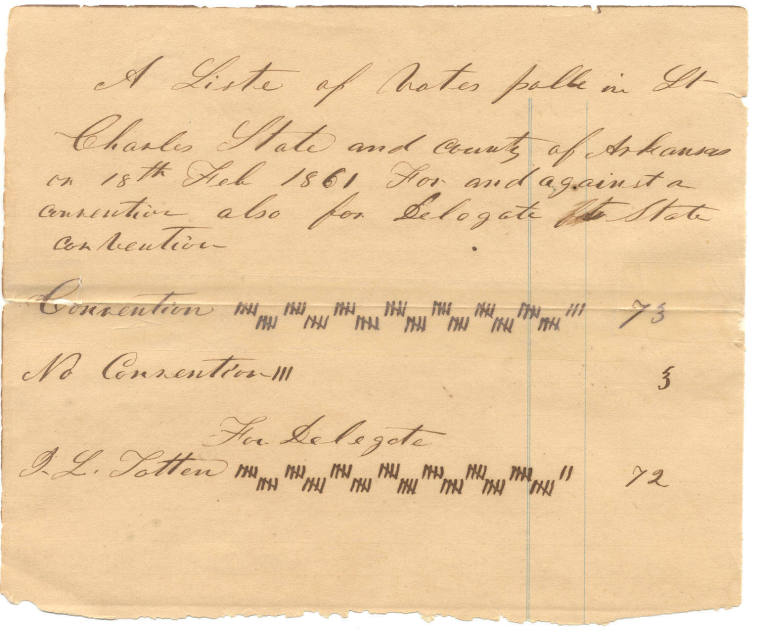 A Liste of Votes polle in St
Charles State and county of Arkansas
on 18th Feb 1861 For and against a
convention also for Delogate to State
convention
Convention 73
No Convention 3
For Delegate
J. L. Totten 72